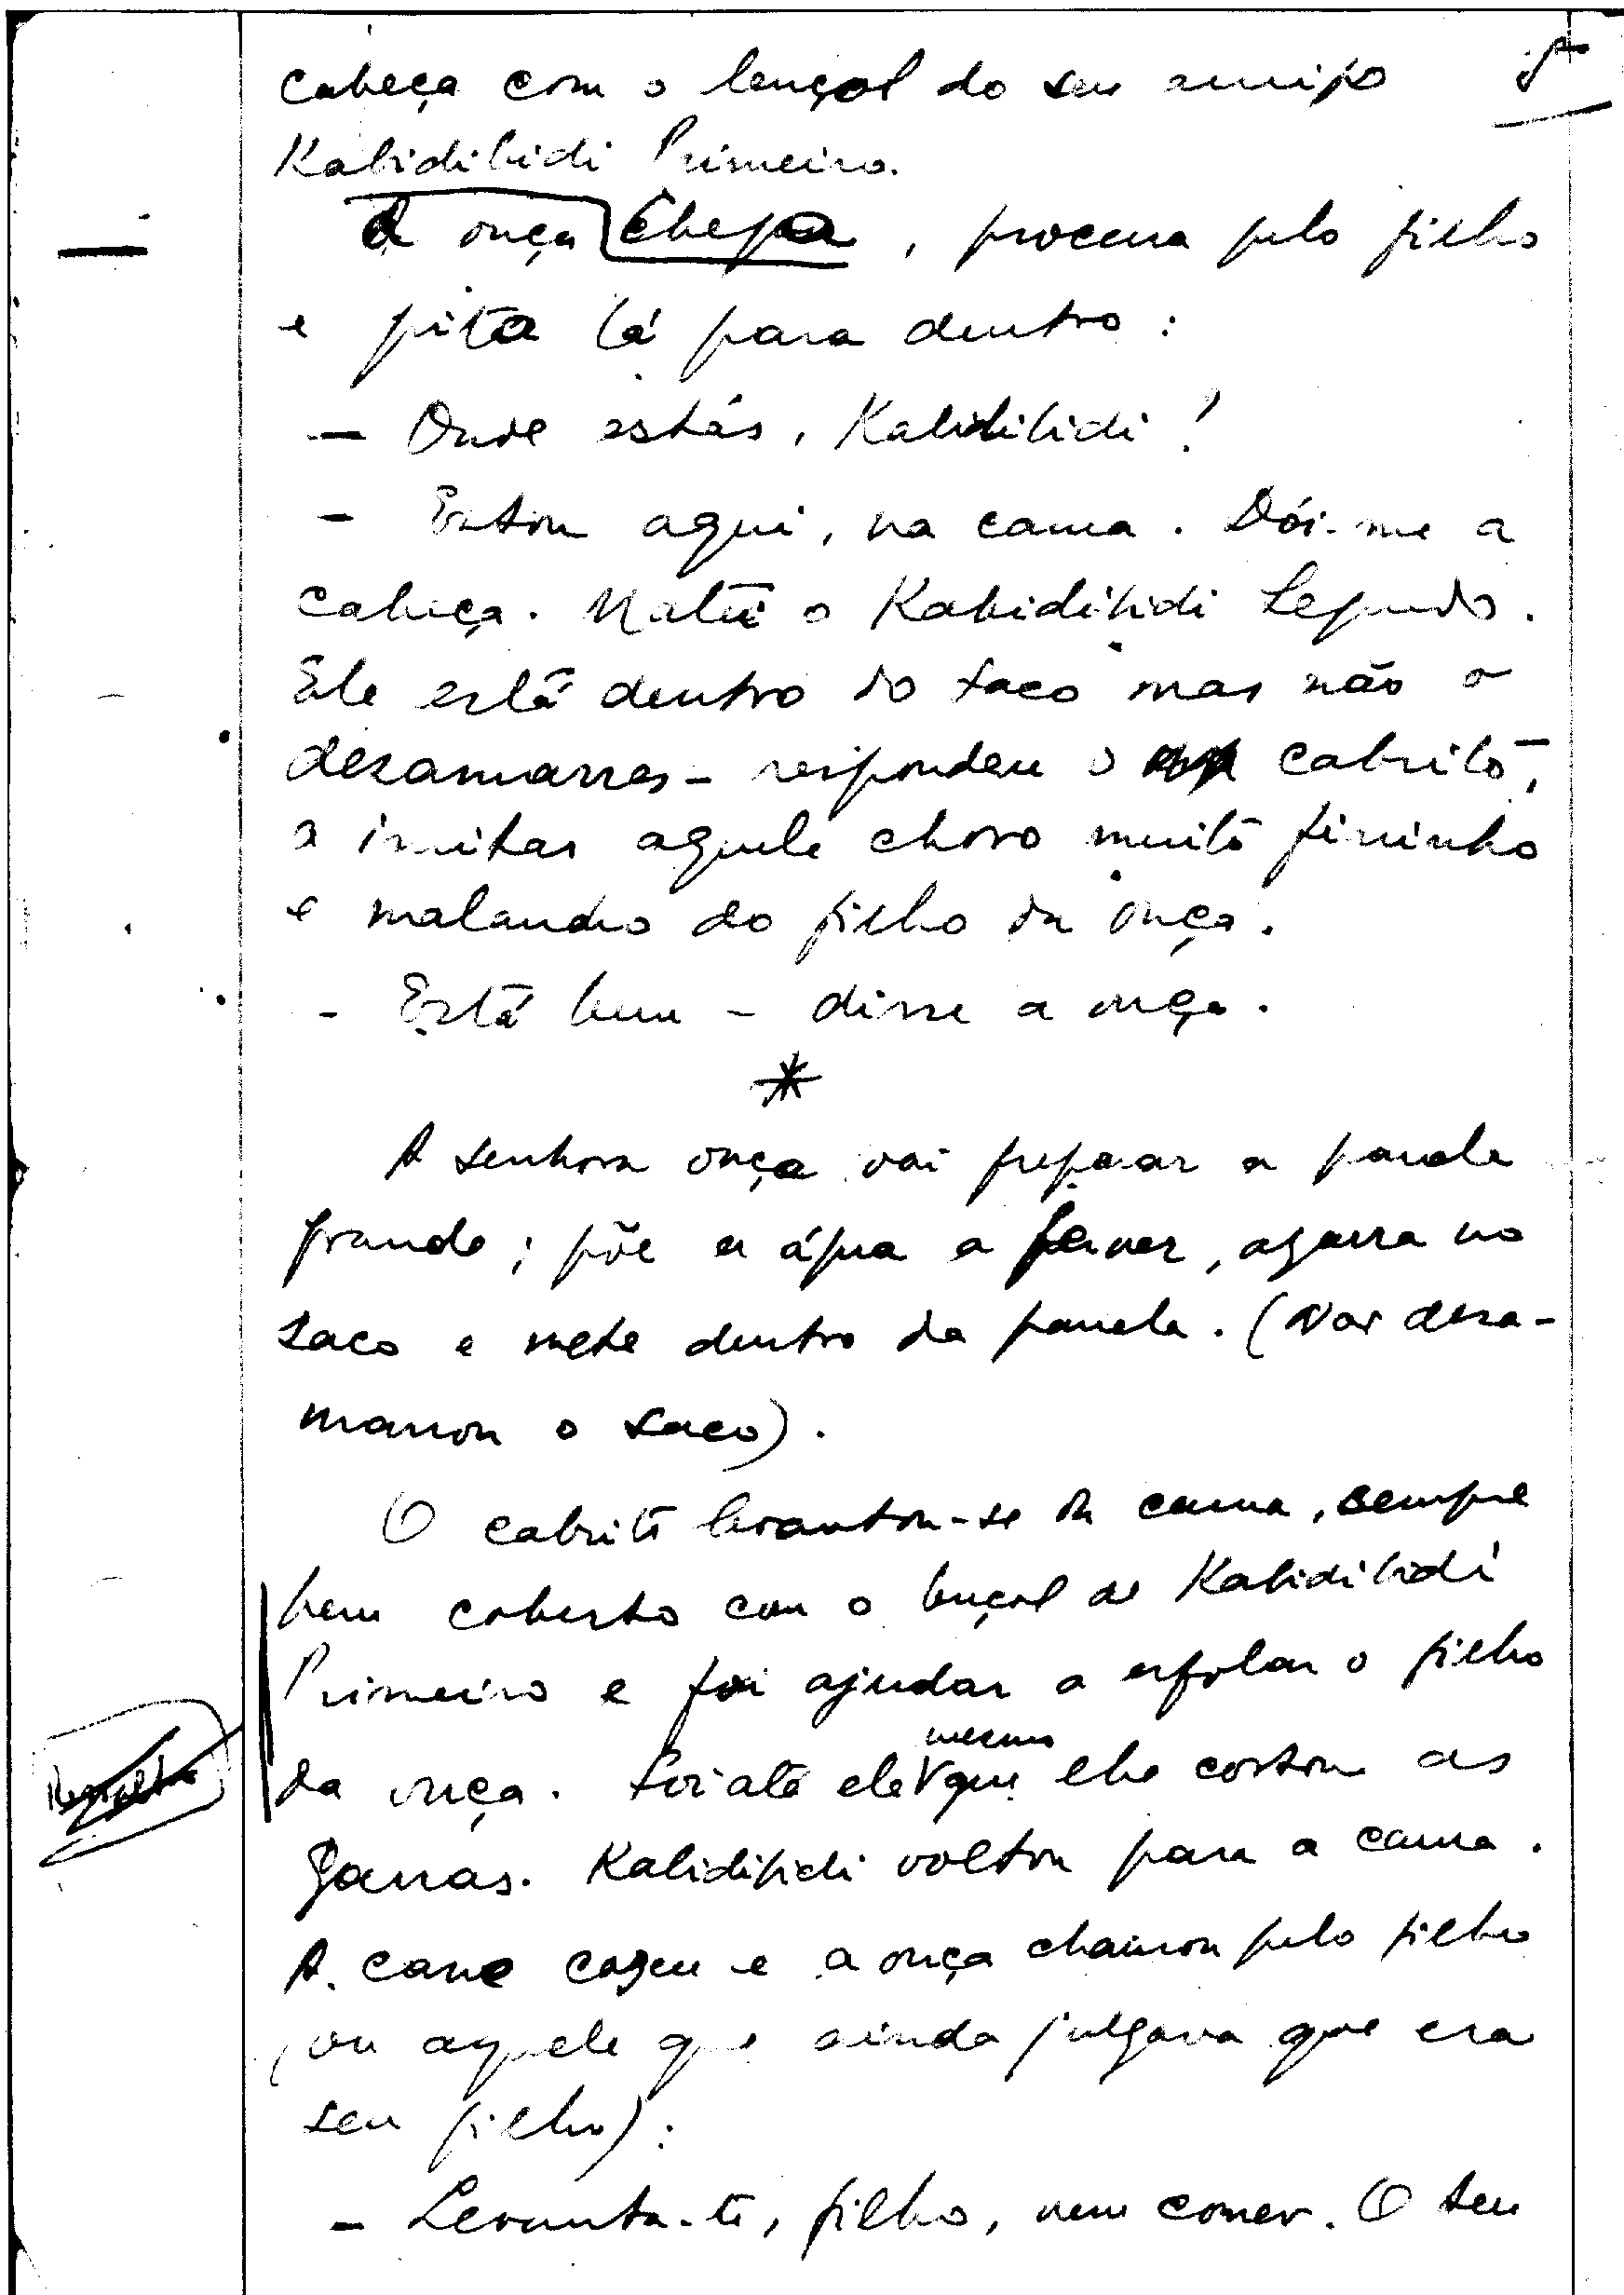 cabeça com o lençol do seu amigo
Kabidibidi Primeiro.
A onça Chega, procura pelo filho
e grita lá para dentro:
— Onde estás, Kabidibidi?
— Estou aqui, na cama. Dói-me a
cabeça. Matei o Kabidibidi Segundo.
Ele está dentro do saco mas não o
desamarres — respondeu o cabrito,
a imitar aquele choro muito fininho
e malandro do filho da onça.
— Está bem — disse a onça.
*
A senhora onça vai preparar a panela
grande; põe a água a ferver, agarra no
saco e mete dentro da panela. (Não desa-
marrou o saco).
O cabrito levantou-se da cama, sempre
bem coberto com o lençol de Kabidibidi
Primeiro e foi ajudar a esfolar o filho
mesmo
da onça. Foi até ele que lhe cortou as
garras. Kabidibidi voltou para a cama.
A carne cozeu e a onça chamou pelo filho
(ou aquele que ainda julgava que era
seu filho):
— Levanta-te, filho, vem comer. O teu